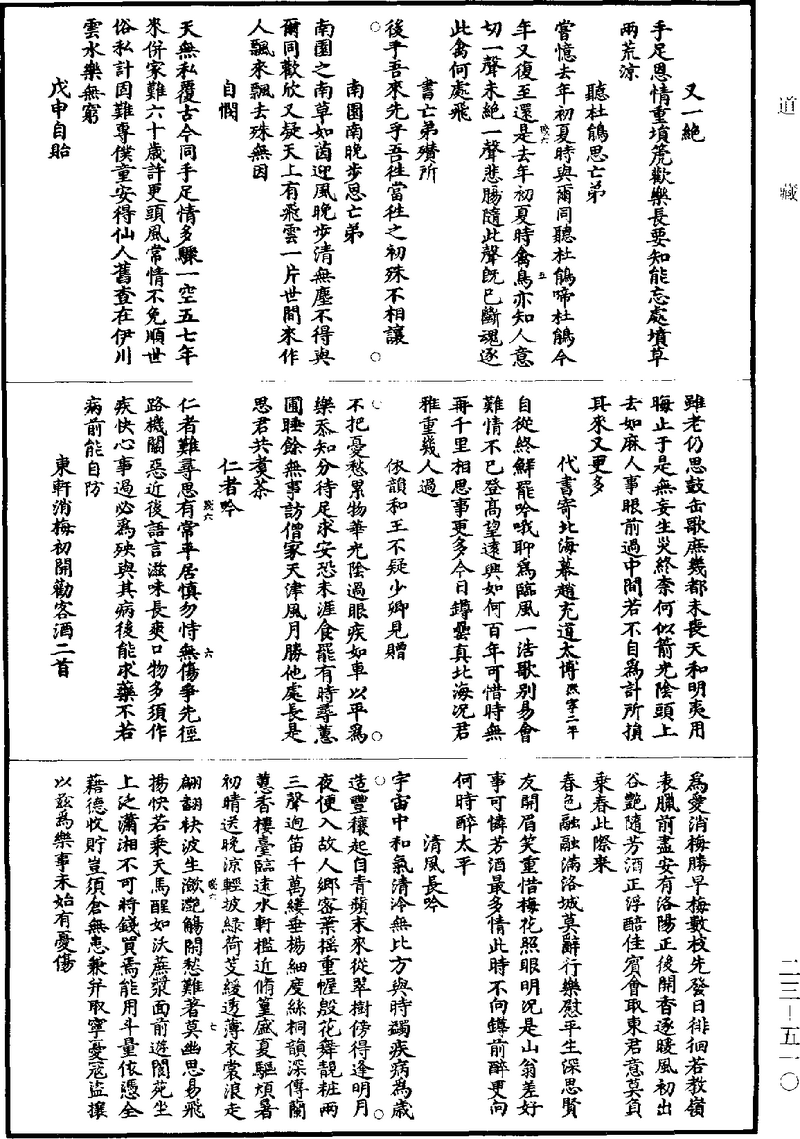 道藏
又一絶
手足恩情重塤箎歡樂長要知能忘處墳草
兩荒涼
聽杜鵑思亡弟
嘗憶去年初夏時與爾同聽杜鵑啼杜鵑今
年又復至還是去年初夏時禽鳥亦知人意
切一聲未絶一聲悲腸隨此聲旣已斷魂逐
此禽何處飛
書亡弟殯所
後乎吾來先乎吾徃當徃之初殊不相讓
南園南晚步思亡弟
南園之南草如茵迎風晚步清無塵不得與
爾同歡欣又疑天上有飛雲一片世間來作
人飄來飄去殊無因
自憫
天無私覆古今同手足情多驟一空五七年
來併家難六十歲許更頭風常情不免順世
俗私計固難專僕童安得仙人舊查在伊川
雲水樂無窮
戊申自貽
雖老仍思鼓缶歌庶幾都未喪天和明夷用
晦止于是無妄生災終柰何似箭光陰頭上
去如麻人事眼前過中間若不自爲計所損
其來又更多
代書寄北海幕趙充道太博熙寧二年
自從終鮮罷吟哦聊爲臨風一浩歌别易會
難情不已登高望遠興如何百年可惜時無
再千里相思事更多今日罇罍真北海况君
雅重幾人過
依韻和王不疑少卿見贈
不把憂愁累物華光陰過眼疾如車以平爲
樂忝知分待足求安恐未涯食罷有時尋蕙
圃睡餘無事訪僧家天津風月勝他處長是
思君共煑茶
仁者吟
仁者難尋思有常平居慎勿恃無傷爭先徑
路機關惡近後語言滋味長爽口物多須作
疾快心事過必爲殃與其病後能求藥不若
病前能自防
東軒消梅初開勸客酒二首
爲愛消梅勝早梅數枝先發日徘徊若教嶺
表臘前盡安有洛陽正後開香逐暖風初出
谷艷隨芳酒正浮醅佳賓會取東君意莫負
乘春此際來
春色融融滿洛城莫辭行樂慰平生深思賢
友開眉笑重惜梅花照眼明况是山翁差好
事可憐芳酒最多情此時不向罇前醉更向
何時醉太平
清風長吟
宇宙中和氣清泠無比方與時蠲疾病為歲
造豐穰起自青蘋末來從翠樹傍得逢明月
夜便入故人鄉密葉摇重幄殷花舞靚粧兩
三聲迥笛千萬縷垂楊細度絲桐韻深傳蘭
蕙香樓臺臨逺水軒檻近脩篁盛夏驅煩暑
初晴送晚涼輕披緑荷芰緩透薄衣裳浪走
翩翻袂波生瀲灧觴閑愁難著莫幽思易飛
揚快若乘天馬醒如沃蔗漿面前遊閬苑坐
上泛瀟湘不可將錢買焉能用斗量依憑全
藉德收貯豈須倉無患兼并取寧憂冦盜攘
以兹爲樂事未始有憂傷
二三―五一〇